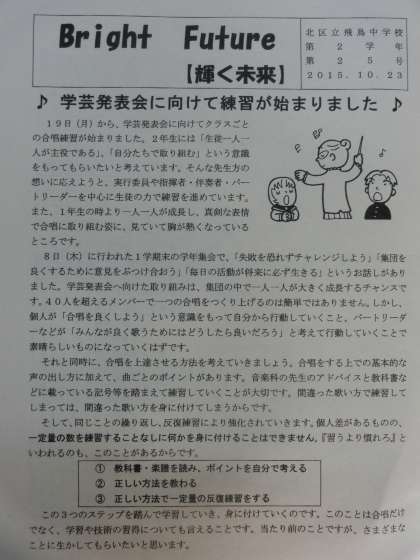 Bright Future
【輝く未来】
北区立飛鳥中学校
第2学年
第25号
2015.10.23
♪ 学芸発表会に向けて練習が始まりました ♪
19日(月)から、学芸発表会に向けてクラスごと
の合唱練習が始まりました。2年生には「生徒一人一
人が主役である」、「自分たちで取り組む」という意識
をもってもらいたいと考えています。そんな先生方の
想いに応えようと、実行委員や指揮者・伴奏者・パー
トリーダーを中心に生徒の力で練習を進めています。
また、1年生の時より一人一人が成長し、真剣な表情
で合唱に取り組む姿に、見ていて胸が熱くなっている
ところです。
8日(木)に行われた1学期末の学年集会で、「失敗を恐れずチャレンジしよう」「集団を
良くするために意見をぶつけ合おう」「毎日の活動が将来に必ず生きる」というお話しがありま
した。学芸発表会へ向けた取り組みは、集団の中で一人一人が大きく成長するチャンスで
す。40人を超えるメンバーで一つの合唱をつくり上げるのは簡単ではありません。しかし、
個人が「合唱を良くしよう」という意識をもって自分から行動していくこと、パートリーダ
ーなどが「みんなが良く歌うためにはどうしたら良いだろう」と考えて行動していくことで
素晴らしいものになっていくはずです。
それと同時に、合唱を上達させる方法を考えていきましょう。合唱をする上での基本的な
声の出し方に加えて、曲ごとのポイントがあります。音楽科の先生のアドバイスと教科書な
どに載っている記号等を踏まえて練習していくことが大切です。間違った歌い方で練習して
しまっては、間違った歌い方を身に付けてしまうからです。
そして、同じことの繰り返し、反復練習により強化されていきます。個人差があるものの、
一定量の数を練習することなしに何かを身に付けることはできません。『習うより慣れろ』と
いわれるのも、このことがあるからです。
① 教科書・楽譜を読み、ポイントを自分で考える
② 正しい方法を教わる
③ 正しい方法で一定量の反復練習をする
この3つのステップを踏んで学習していき、身に付けていくのです。このことは合唱だけ
でなく、学習や技術の習得についても言えることです。当たり前のことですが、さまざまな
ことに生かしてもらいたいと思います。